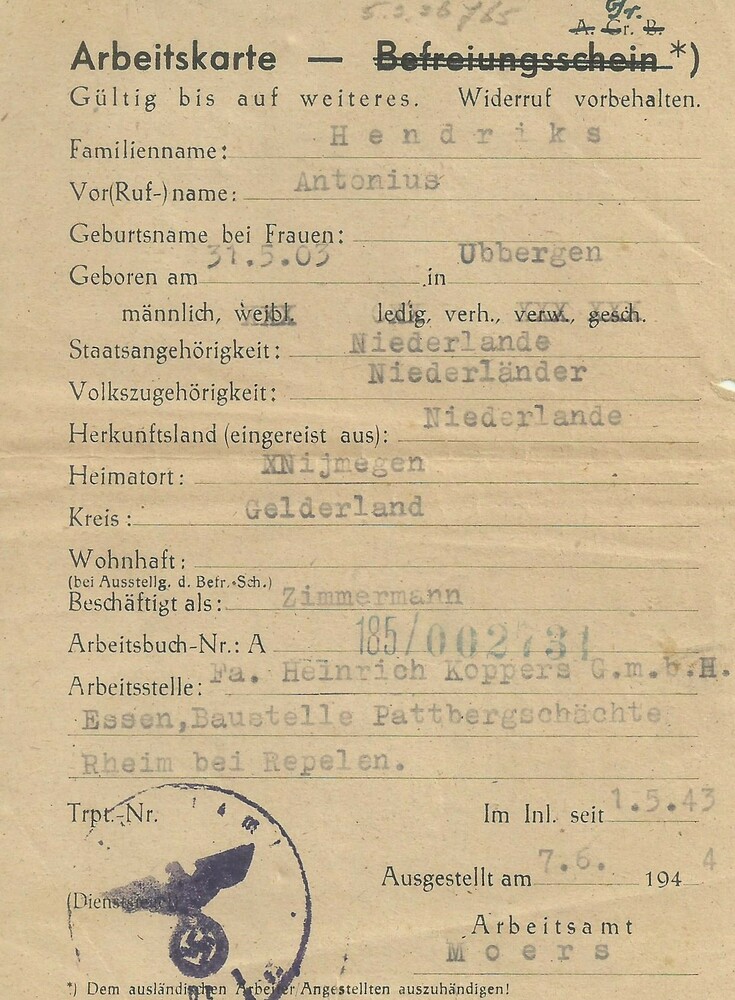 5.3.26 765
Gr.
A. Gr. B.
Arbeitskarte — Befreiungsschein *)
Gültig bis auf weiteres. Widerruf vorbehalten.
Familienname: Hendriks
Vor(Ruf-)name: Antonius
Geburtsname bei Frauen:
Geboren am 31.5.03 in Ubbergen
männlich, weibl. ledig, verh., verw., gesch.
Staatsangehörigkeit: Niederlande
Volkszugehörigkeit: Niederländer
Herkunftsland (eingereist aus): Niederlande
Heimatort: XNijmegen
Kreis: Gelderland
Wohnhaft:
(bei Ausstellg. d. Befr.-Sch.)
Beschäftigt als: Zimmermann
Arbeitsbuch-Nr.: A 185/002731
Arbeitsstelle: Fa. Heinrich Koppers G.m.b.H.
Essen, Baustelle Pattbergschächte
Rheim bei Repelen.
Trpt.-Nr. Im Inl. seit 1.5.43
Ausgestellt am 7.6. 1944
(Dienststempel)
Arbeitsamt
Moers
*) Dem ausländischen Arbeiter/Angestellten auszuhändigen!